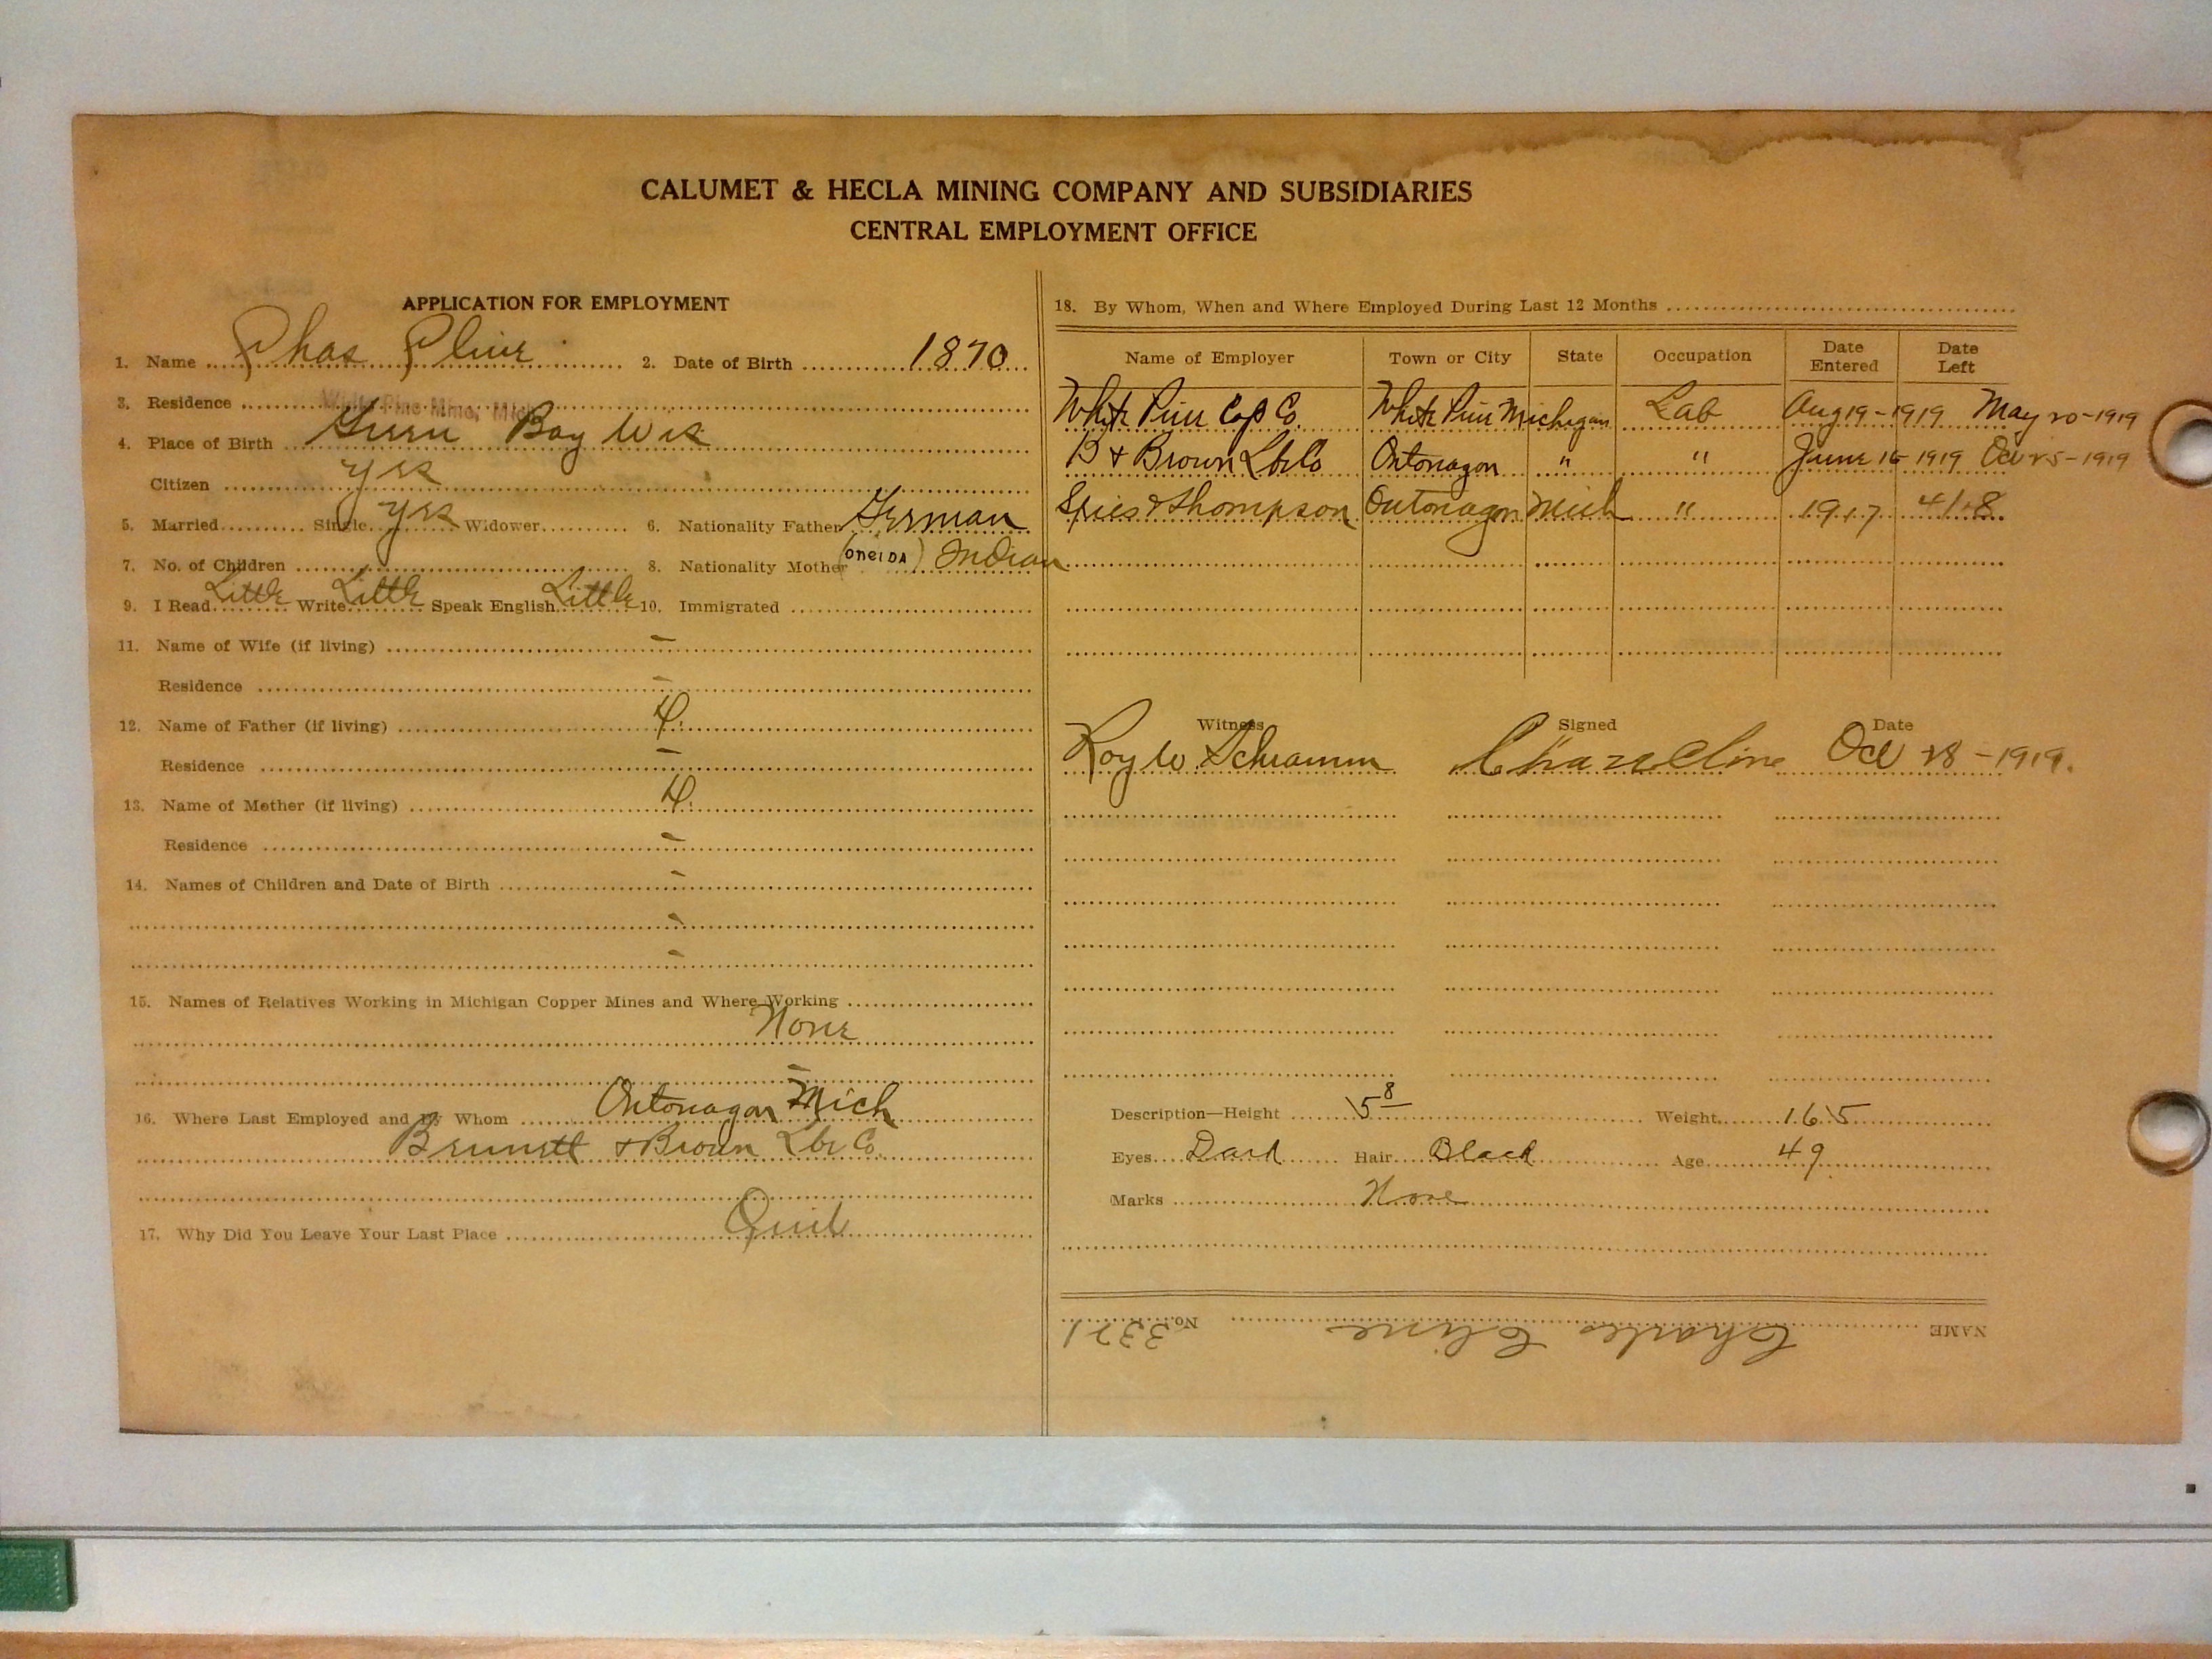 CALUMET & HECLA MINING COMPANY AND SUBSIDIARIES
CENTRAL EMPLOYMENT OFFICE
APPLICATION FOR EMPLOYMENT
1. Name Chas Cline 2. Date of Birth 1870
3. Residence White Pine Mine, Mich
4. Place of Birth Green Bay Wis
Citizen Yes
5. Married Single Yes Widower 6. Nationality Father German
7. No. of Children 8. Nationality Mother (ONEIDA) Indian
9. I Read Little Write Little Speak English Little 10. Immigrated
11. Name of Wife (if living) –
Residence –
12. Name of Father (if living) D.
Residence –
13. Name of Mother (if living) D.
Residence –
14. Names of Children and Date of Birth –
–
–
15. Names of Relatives Working in Michigan Copper Mines and Where Working
None
–
16. Where Last Employed and By Whom Ontonagon Mich
& Brown Lbr Co.
17. Why Did You Leave Your Last Place Quit
18. By Whom, When and Where Employed During Last 12 Months
Name of Employer Town or City State Occupation Date Entered Date Left
White Pine Cop Co. White Pine Michigan Lab Aug 19-1919 May 20-1919
B & Brown Lbr Co Ontonagon " " June 15 1919 Oct 25-1919
Spies & Thompson Ontonagon Mich " 1917 1918
Witness Signed Date
Roy W Schramm Chas Cline Oct 28-1919.
Description—Height 5 8 Weight 165
Eyes Dark Hair Black Age 49
Marks None
NAME Charles Cline No. 3321